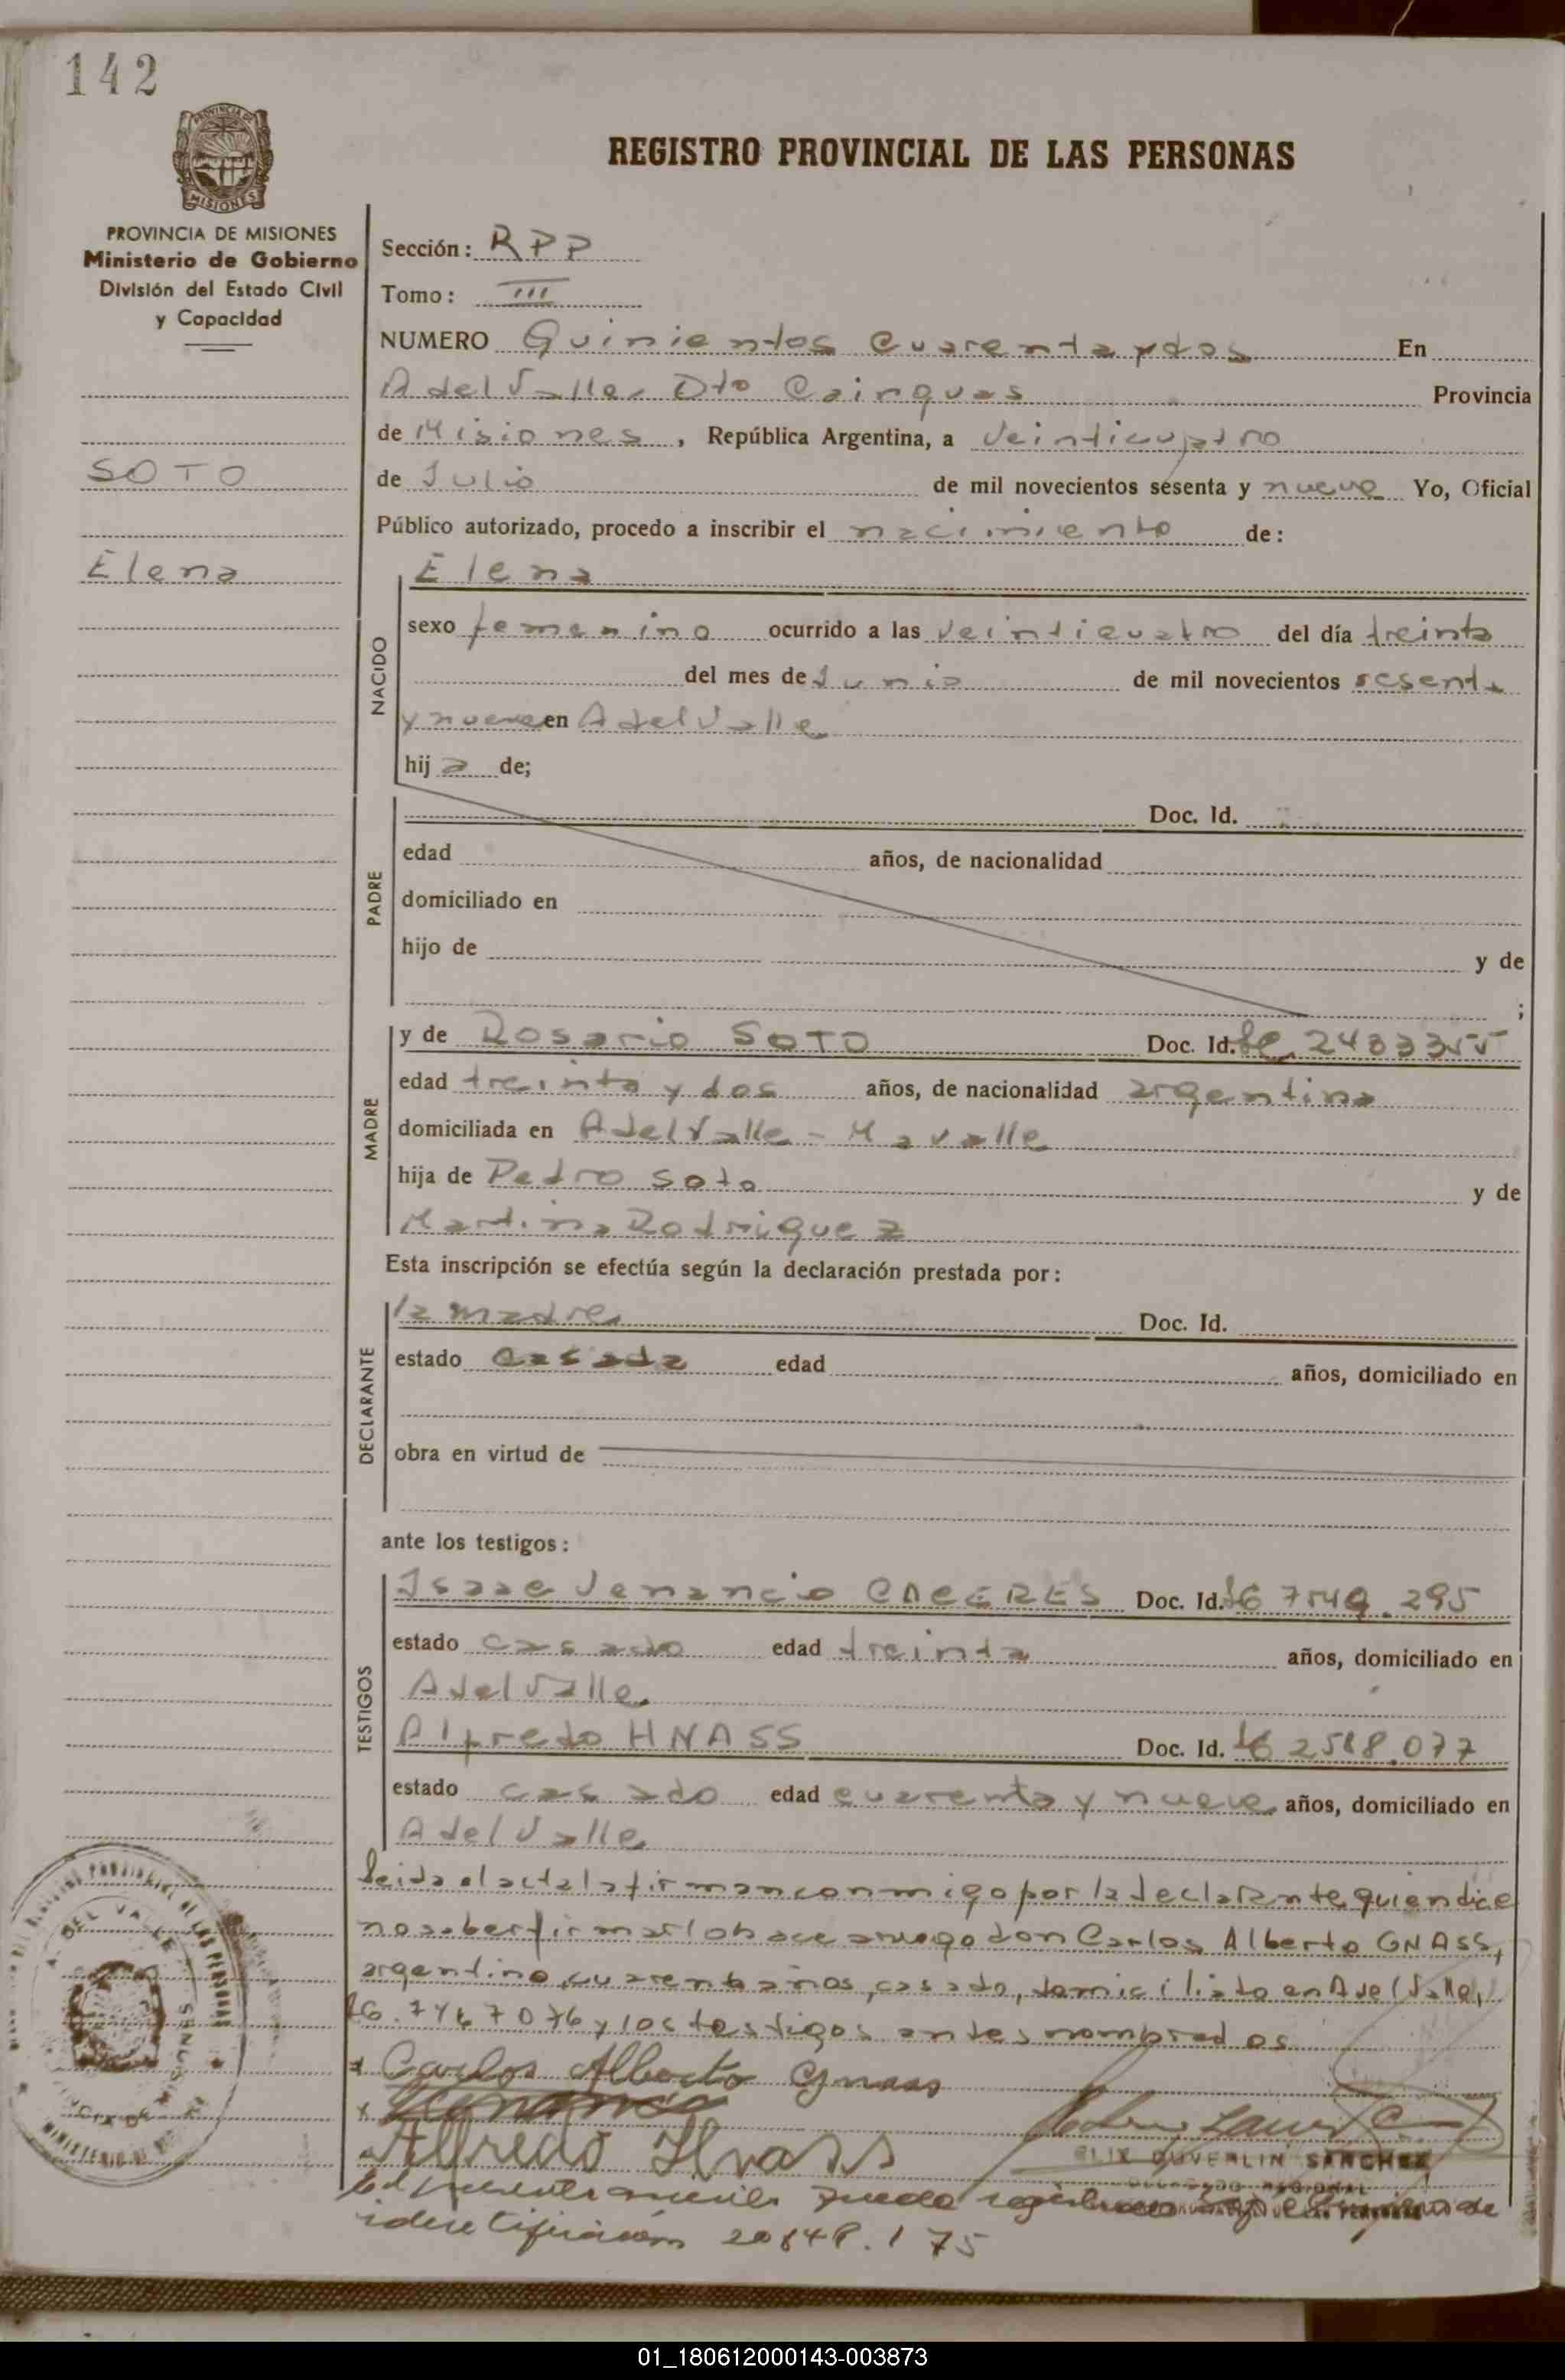 142
PROVINCIA DE MISIONES
Ministerio de Gobierno
División del Estado Civil
y Capacidad
SOTO
Elena
REGISTRO PROVINCIAL DE LAS PERSONAS
Sección: RPP
Tomo: III
NUMERO Quinientos Cuarenta y dos En
A del Valle, Dto Cainguas Provincia
de Misiones, República Argentina, a Veinticuatro
de Julio de mil novecientos sesenta y nueve Yo, Oficial
Público autorizado, procedo a inscribir el nacimiento de:
NACIDO
Elena
sexo femenino ocurrido a las Veinticuatro del día treinta
del mes de Junio de mil novecientos sesenta
y nueve en A del Valle
hija de;
PADRE
Doc. Id.
edad años, de nacionalidad
domiciliado en
hijo de y de
;
MADRE
y de Rosario SOTO Doc. Id. 2433355
edad treinta y dos años, de nacionalidad argentina
domiciliada en A del Valle -
hija de Pedro Soto y de
Martina Rodriguez
Esta inscripción se efectúa según la declaración prestada por:
DECLARANTE
la madre Doc. Id.
estado casada edad años, domiciliado en
obra en virtud de
ante los testigos:
TESTIGOS
Isaac Venancio CACERES Doc. Id. 7549.295
estado casado edad treinta años, domiciliado en
A del Valle
Alfredo HNASS Doc. Id. 2588.077
estado casado edad cuarenta y nueve años, domiciliado en
A del Valle
Leida el acta la firman conmigo por la declarante quien dice
no saber firmar lo hace a ruego don Carlos Alberto GNASS,
argentino, cuarenta años, casado, domiciliado en A del Valle,
y los testigos antes nombrados
Carlos Alberto Gnass
Alfredo Hnass
DUVERLIN SANCHEZ
identificación 20848.175
01_180612000143-003873